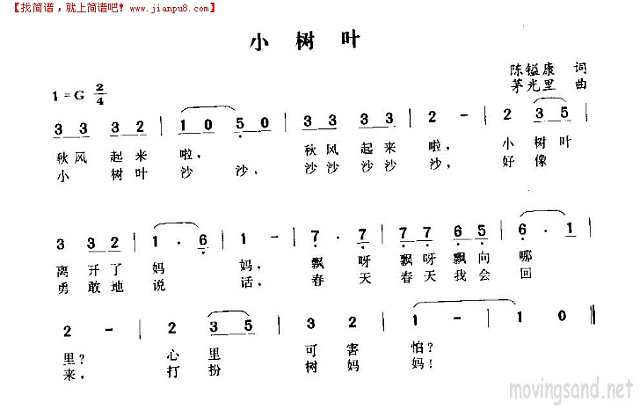 【找简谱，就上简谱吧! www.jianpu8.com】
小树叶
1=G 2/4
陈镒康 词
茅光里 曲
3 3 3 2 | 1 0 5 0 | 3 3 3 2 | 2 - | 2 3 5 |
秋风 起来 啦， 秋风起来 啦， 小树叶
小 树叶 沙 沙， 沙沙沙沙 沙， 好像
3 3 2 | 1 · 6 | 1 - | 7 · 7 | 7 7 6 5 | 6 · 1 |
离 开了 妈 妈， 飘 呀 飘呀飘向 哪
勇 敢地 说 话， 春 天 春天我会 回
2 - | 2 3 5 | 3 2 | 1 - | 1 0 ‖
里? 心 里 可 害 怕?
来， 打 扮 树 妈 妈!
movingsand.net